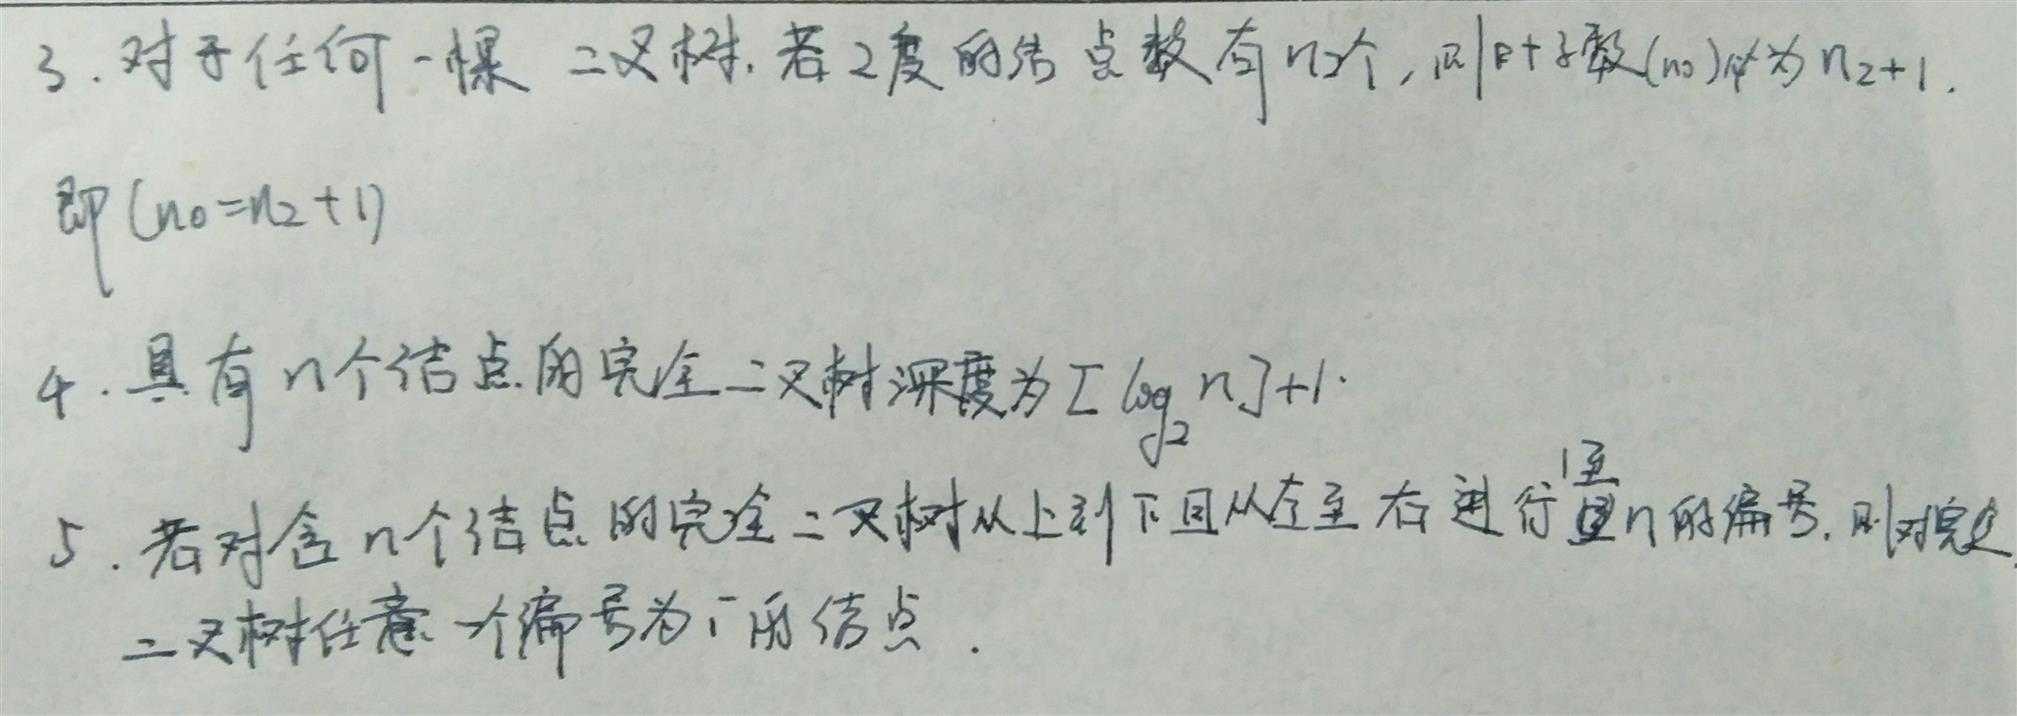 3.对于任何一棵二叉树,若2度的结点数有n2个,则叶子数(n0)必为n2+1.
即(n0=n2+1)
4.具有n个结点的完全二叉树深度为[log2n]+1.
5.若对含n个结点的完全二叉树从上到下且从左至右进行1至n的编号,则对完全
二叉树任意一个编号为i的结点.